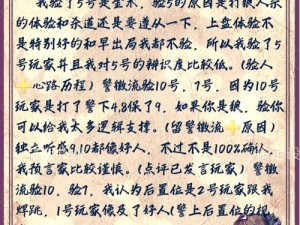 我验了5号是金水，验5的原因是打狼人杀
的体验和杀道还是要遵从一下，上盘体验不
是特别好的和早出局我都不验，所以我验了5
号玩家并且我对5号的辩识度比较低。(验人
心路历程）警徽流验10号，7号，因为10号
玩家是打了警下4.8保了9，如果你是狼，验你
可以给我太多逻辑支撑。(留警徽流+原因）
独立听感9.10都像好人，不过不是100%确认，
我预言家比较谨慎。(点评已发言玩家）警徽
流验10，验7，我认为后置位是2号玩家跟我
焊跳，1号玩家像及了好人(警上后置位的权